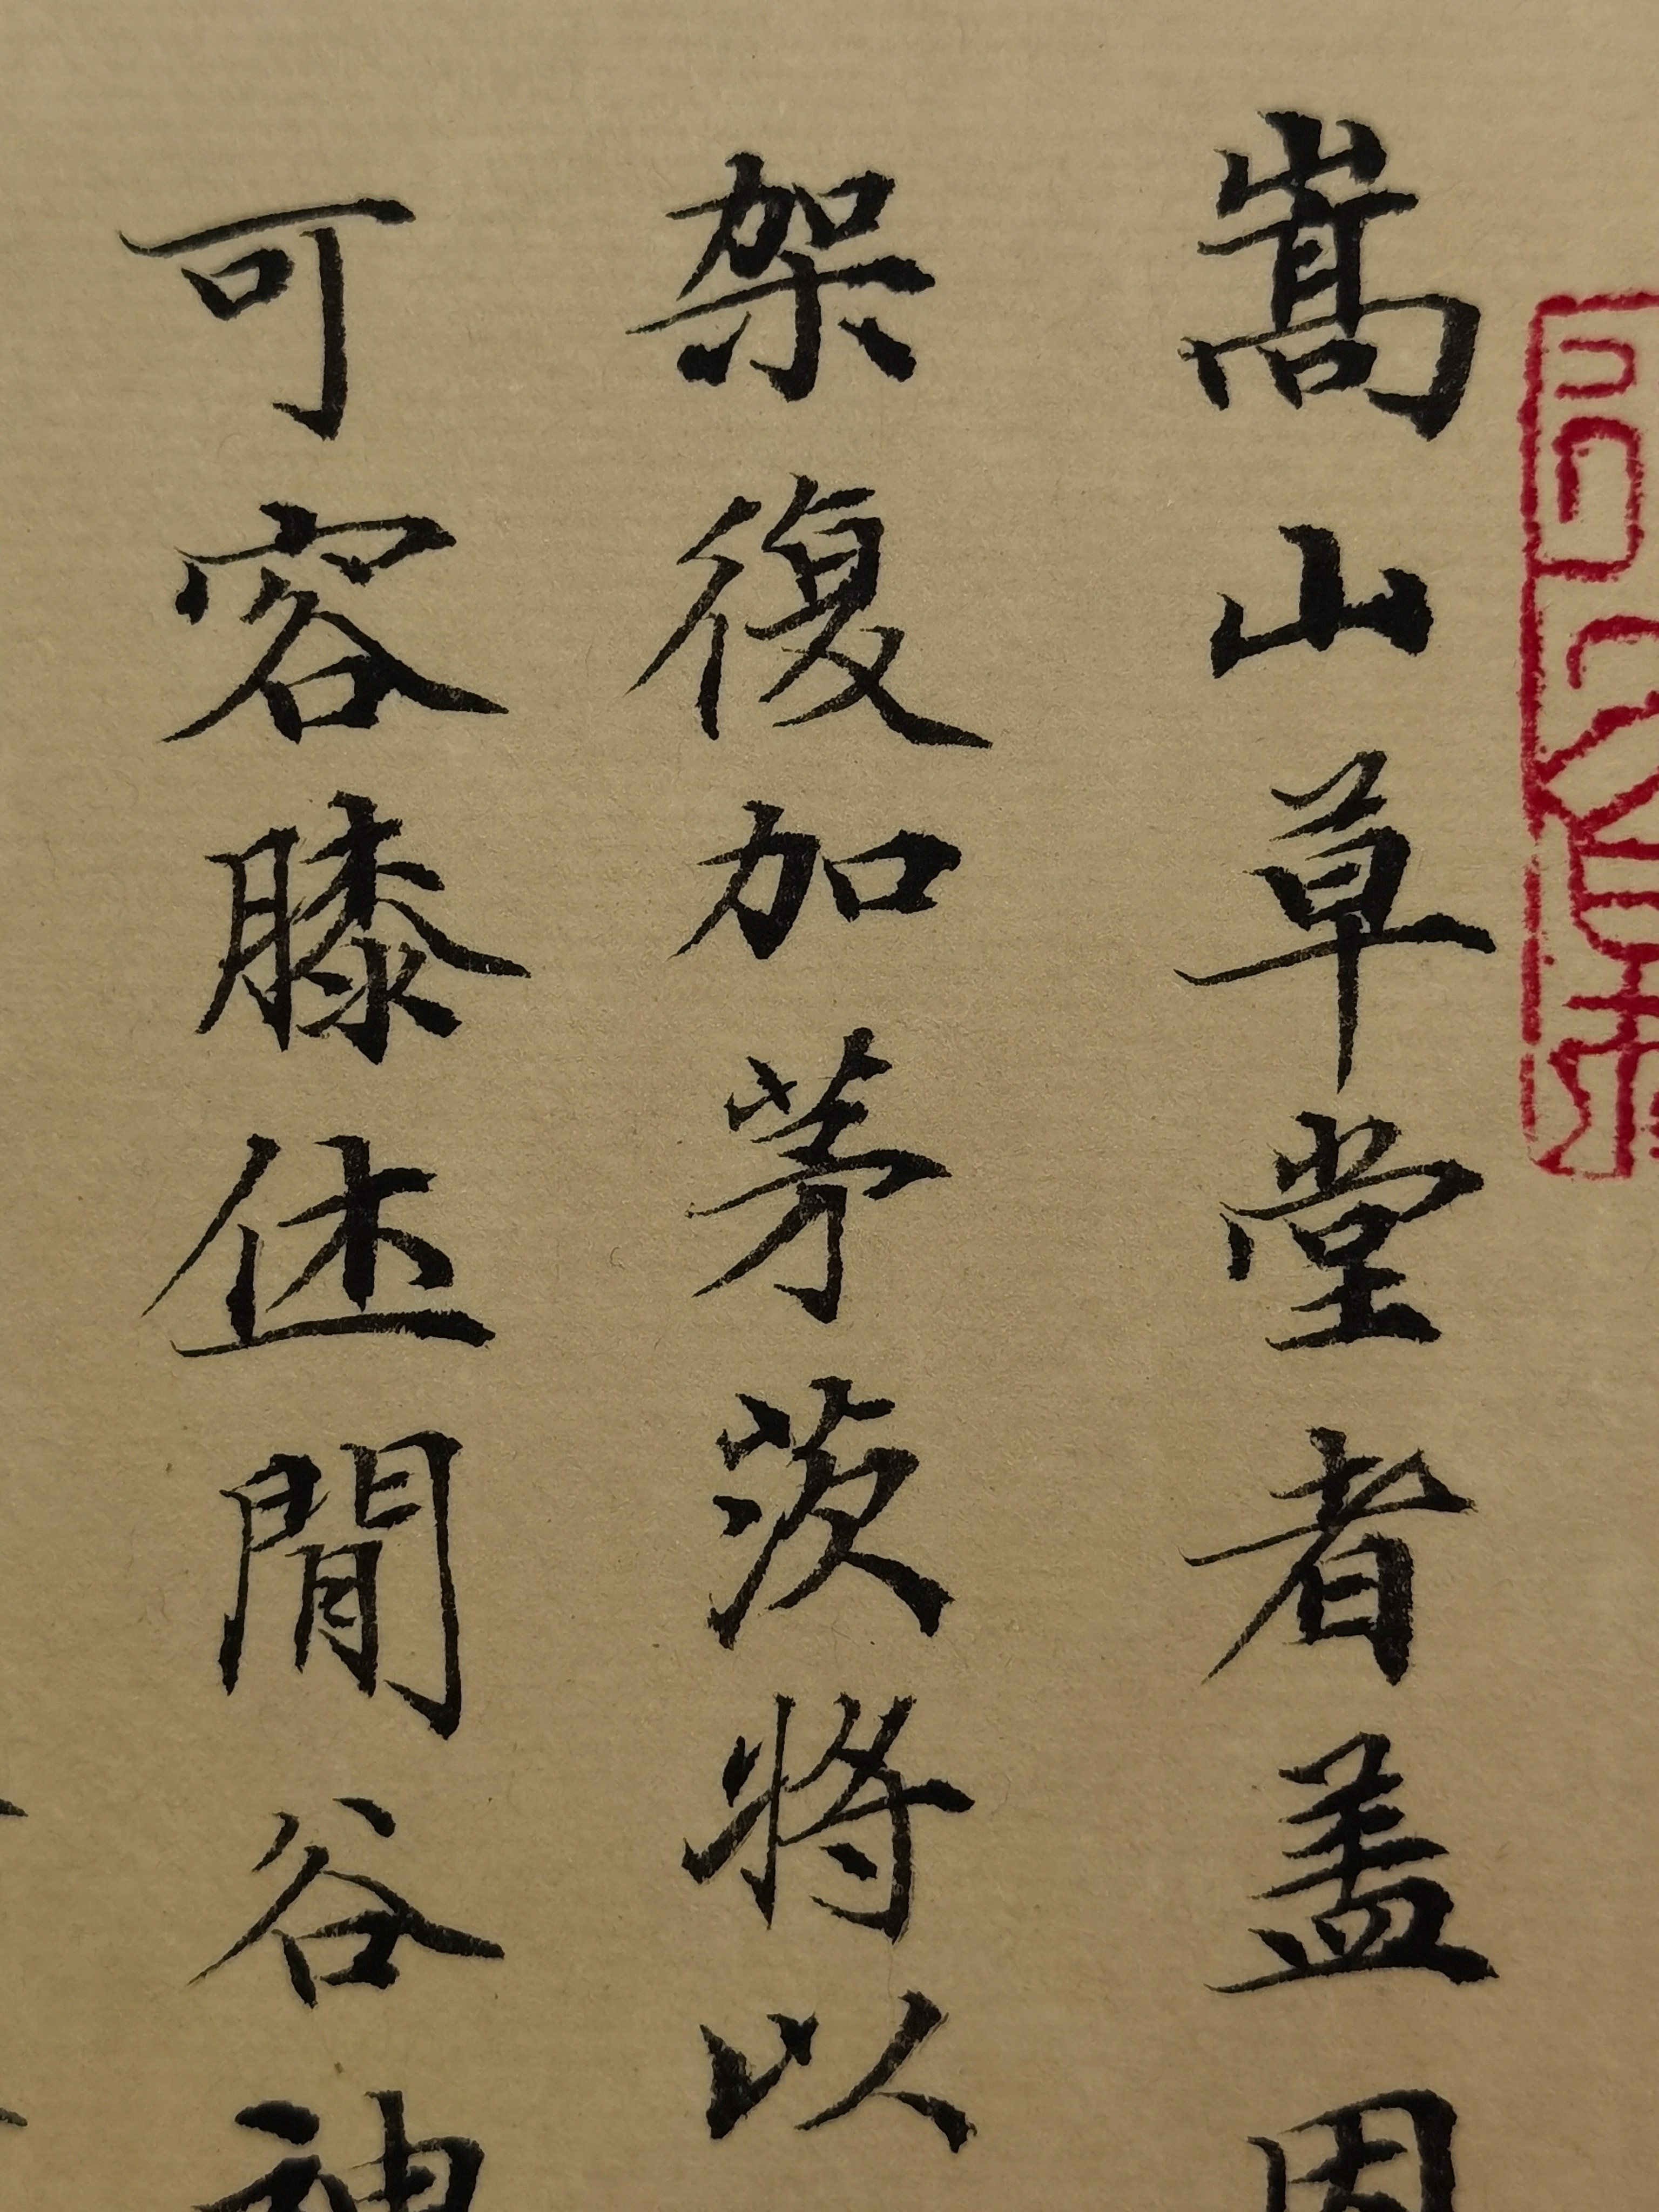 嵩山草堂者盖因
架復加茅茨將以
可容膝休閒谷神